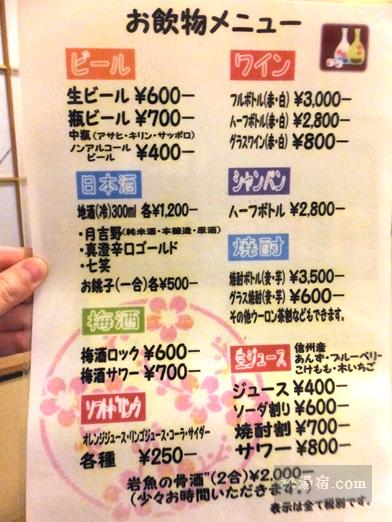 お飲物メニュー
ビール
生ビール ¥600ー
瓶ビール ¥700ー
中瓶(アサヒ・キリン・サッポロ)
ノンアルコール
ビール ¥400ー
日本酒
地酒(冷)300ml 各¥1,200ー
・月吉野(純米酒・本醸造・原酒)
・真澄辛口ゴールド
・七笑
お銚子(一合)各¥500ー
梅酒
梅酒ロック ¥600ー
梅酒サワー ¥700ー
ソフトドリンク
オレンジジュース・リンゴジュース・コーラ・サイダー
各種 ¥250ー
ワイン
フルボトル(赤・白) ¥3,000ー
ハーフボトル(赤・白) ¥2,800ー
グラスワイン(赤・白) ¥800ー
シャンパン
ハーフボトル ¥2,800ー
焼酎
焼酎ボトル(麦・芋) ¥3,500ー
グラス焼酎(麦・芋) ¥600ー
その他ウーロン茶割などもできます。
生ジュース
信州産
あんず・ブルーベリー
こけもも・木いちご
ジュース ¥400ー
ソーダ割り ¥600ー
焼酎割 ¥700ー
サワー ¥800ー
岩魚の骨酒"(2合)¥2,000ー
(少々お時間いただきます。)
表示は全て税別です。
湯宿.com